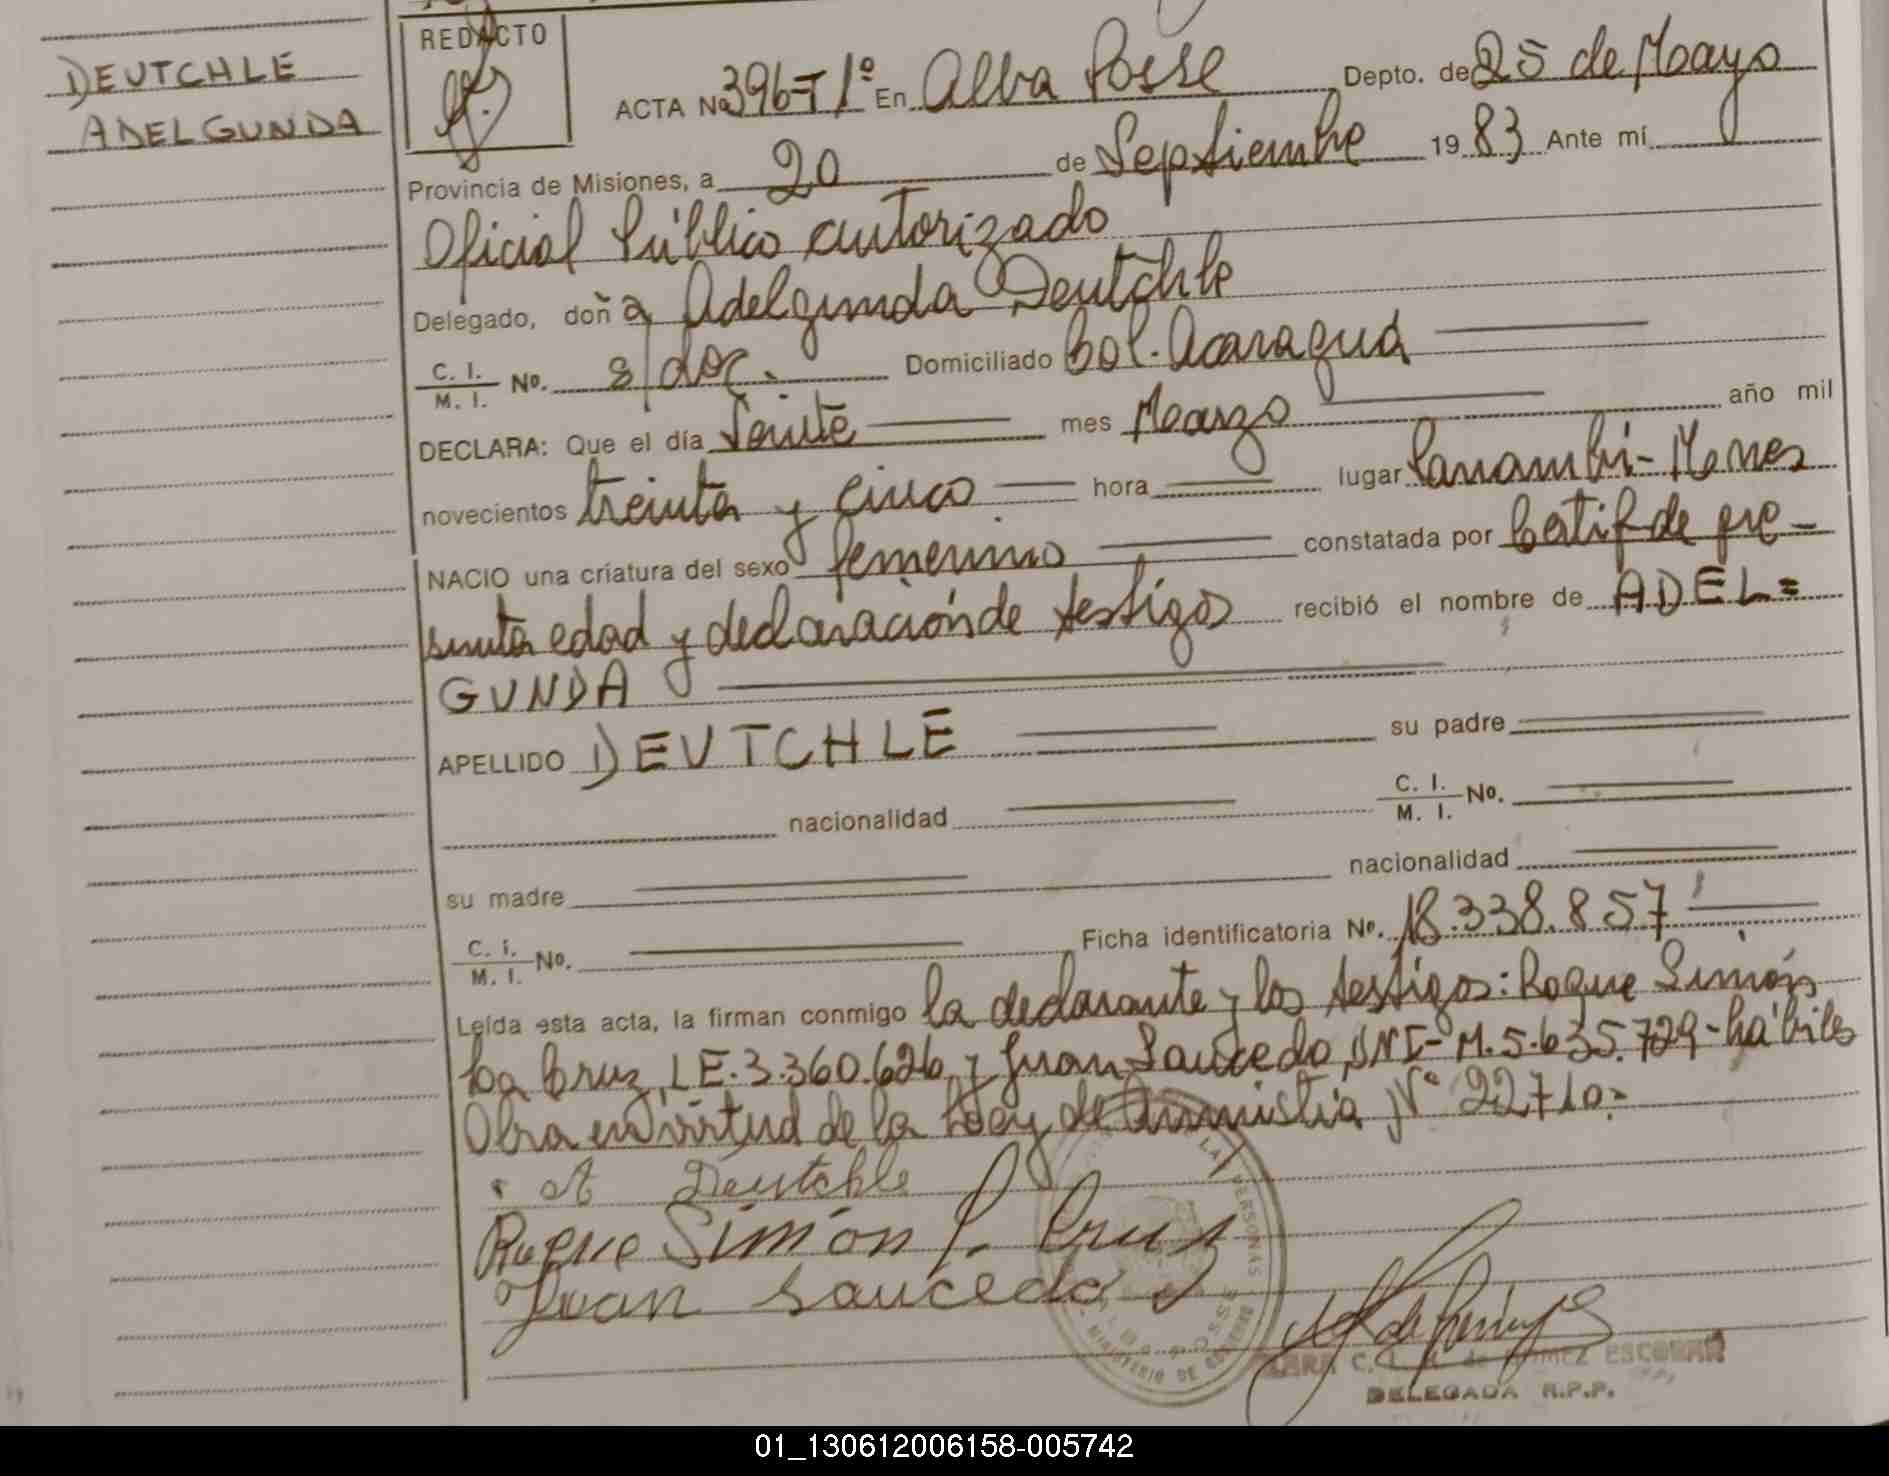 DEUTCHLE
ADELGUNDA
REDACTO
ACTA No 396-T1º En Alba Posse Depto. de 25 de Mayo
Provincia de Misiones, a 20 de Septiembre 1983 Ante mí
Oficial Público autorizado
Delegado, doña Adelgunda Deutchle
C. I. / M. I. No. s/doc. Domiciliado Col. Acaraguá
DECLARA: Que el día Veinte mes Marzo año mil
novecientos treinta y cinco hora lugar Panambí-Mones
NACIO una criatura del sexo femenino constatada por Certif de pre-
sunta edad y declaración de testigos recibió el nombre de ADEL=
GUNDA
APELLIDO DEUTCHLE su padre
nacionalidad C. I. / M. I. No.
su madre nacionalidad
C. I. / M. I. No. Ficha identificatoria No. 18.338.857
Leída esta acta, la firman conmigo la declarante y los testigos: Roque Simón
La Cruz, LE.3.360.626 y Juan Saucedo, DNI-M.5.635.729-hábiles
Obra en virtud de la Ley de Amnistía Nº 22710.-
A Deutchle
Roque Simón L. Cruz
Juan Saucedo
LA PERSONAS
MINISTERIO DE GOBIERNO
C. de GOMEZ ESCOBAR
DELEGADA R.P.P.
01_130612006158-005742